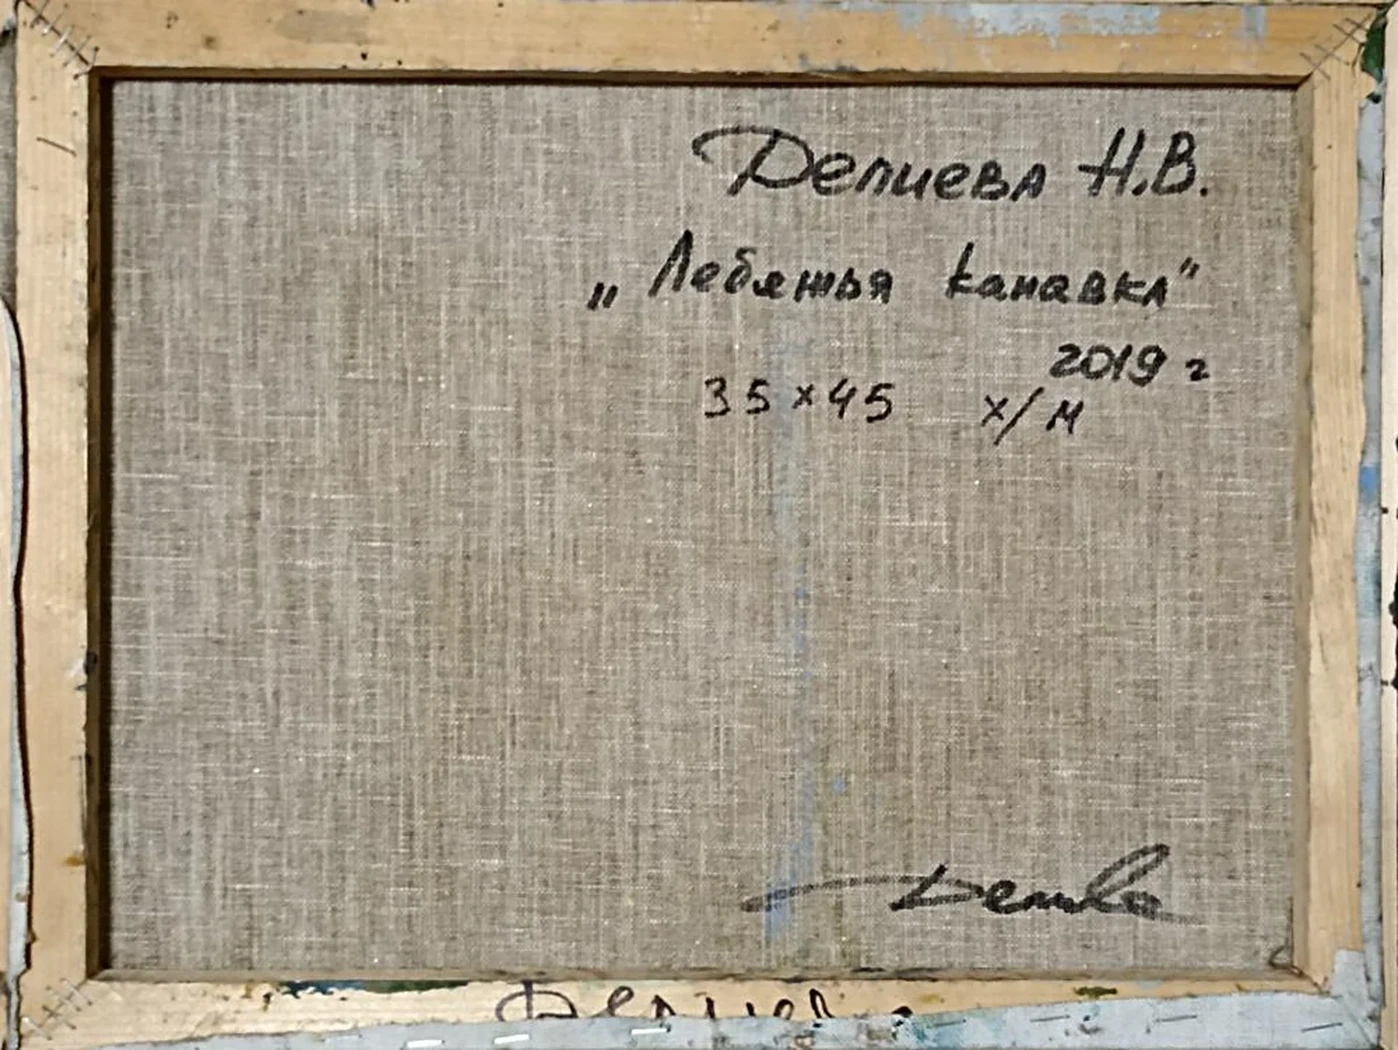 Делиева Н.В.
„Лебяжья канавка"
2019 г
35×45 х/м
Делиева